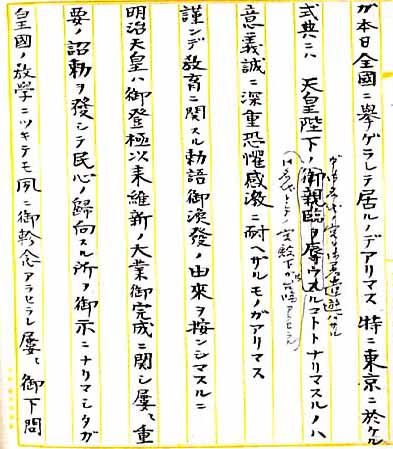 ガ本日全國ニ擧ゲラレテ居ルノデアリマス 特ニ東京ニ於ケル
式典ニハ 天皇陛下ノ御親臨ヲ辱ウスルコトトナリマスルノハ
意義誠ニ深重恐懼感激ニ耐ヘザルモノガアリマス
謹ンデ教育ニ関スル勅語御渙發ノ由來ヲ按ンジマスルニ
明治天皇ハ御登極以来維新ノ大業御完成ニ関シ屡〻重
要ノ詔勅ヲ發シテ民心ノ歸向スル所ヲ御示ニナリマシタガ
皇國ノ教学ニツキテモ夙ニ御軫念アラセラレ屡〻御下問